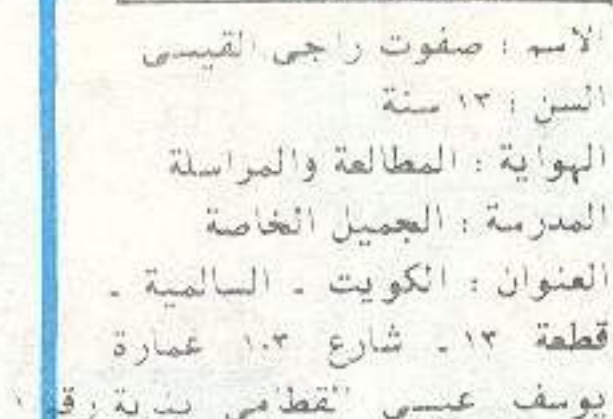 الاسم : صفوت راجى القيسى
السن : ١٣ سنة
الهواية : المطالعة والمراسلة
المدرسة : الجميل الخاصة
العنوان : الكويت - السالمية -
قطعة ١٣ - شارع ١٠٣ عمارة
يوسف عيسى القطامى